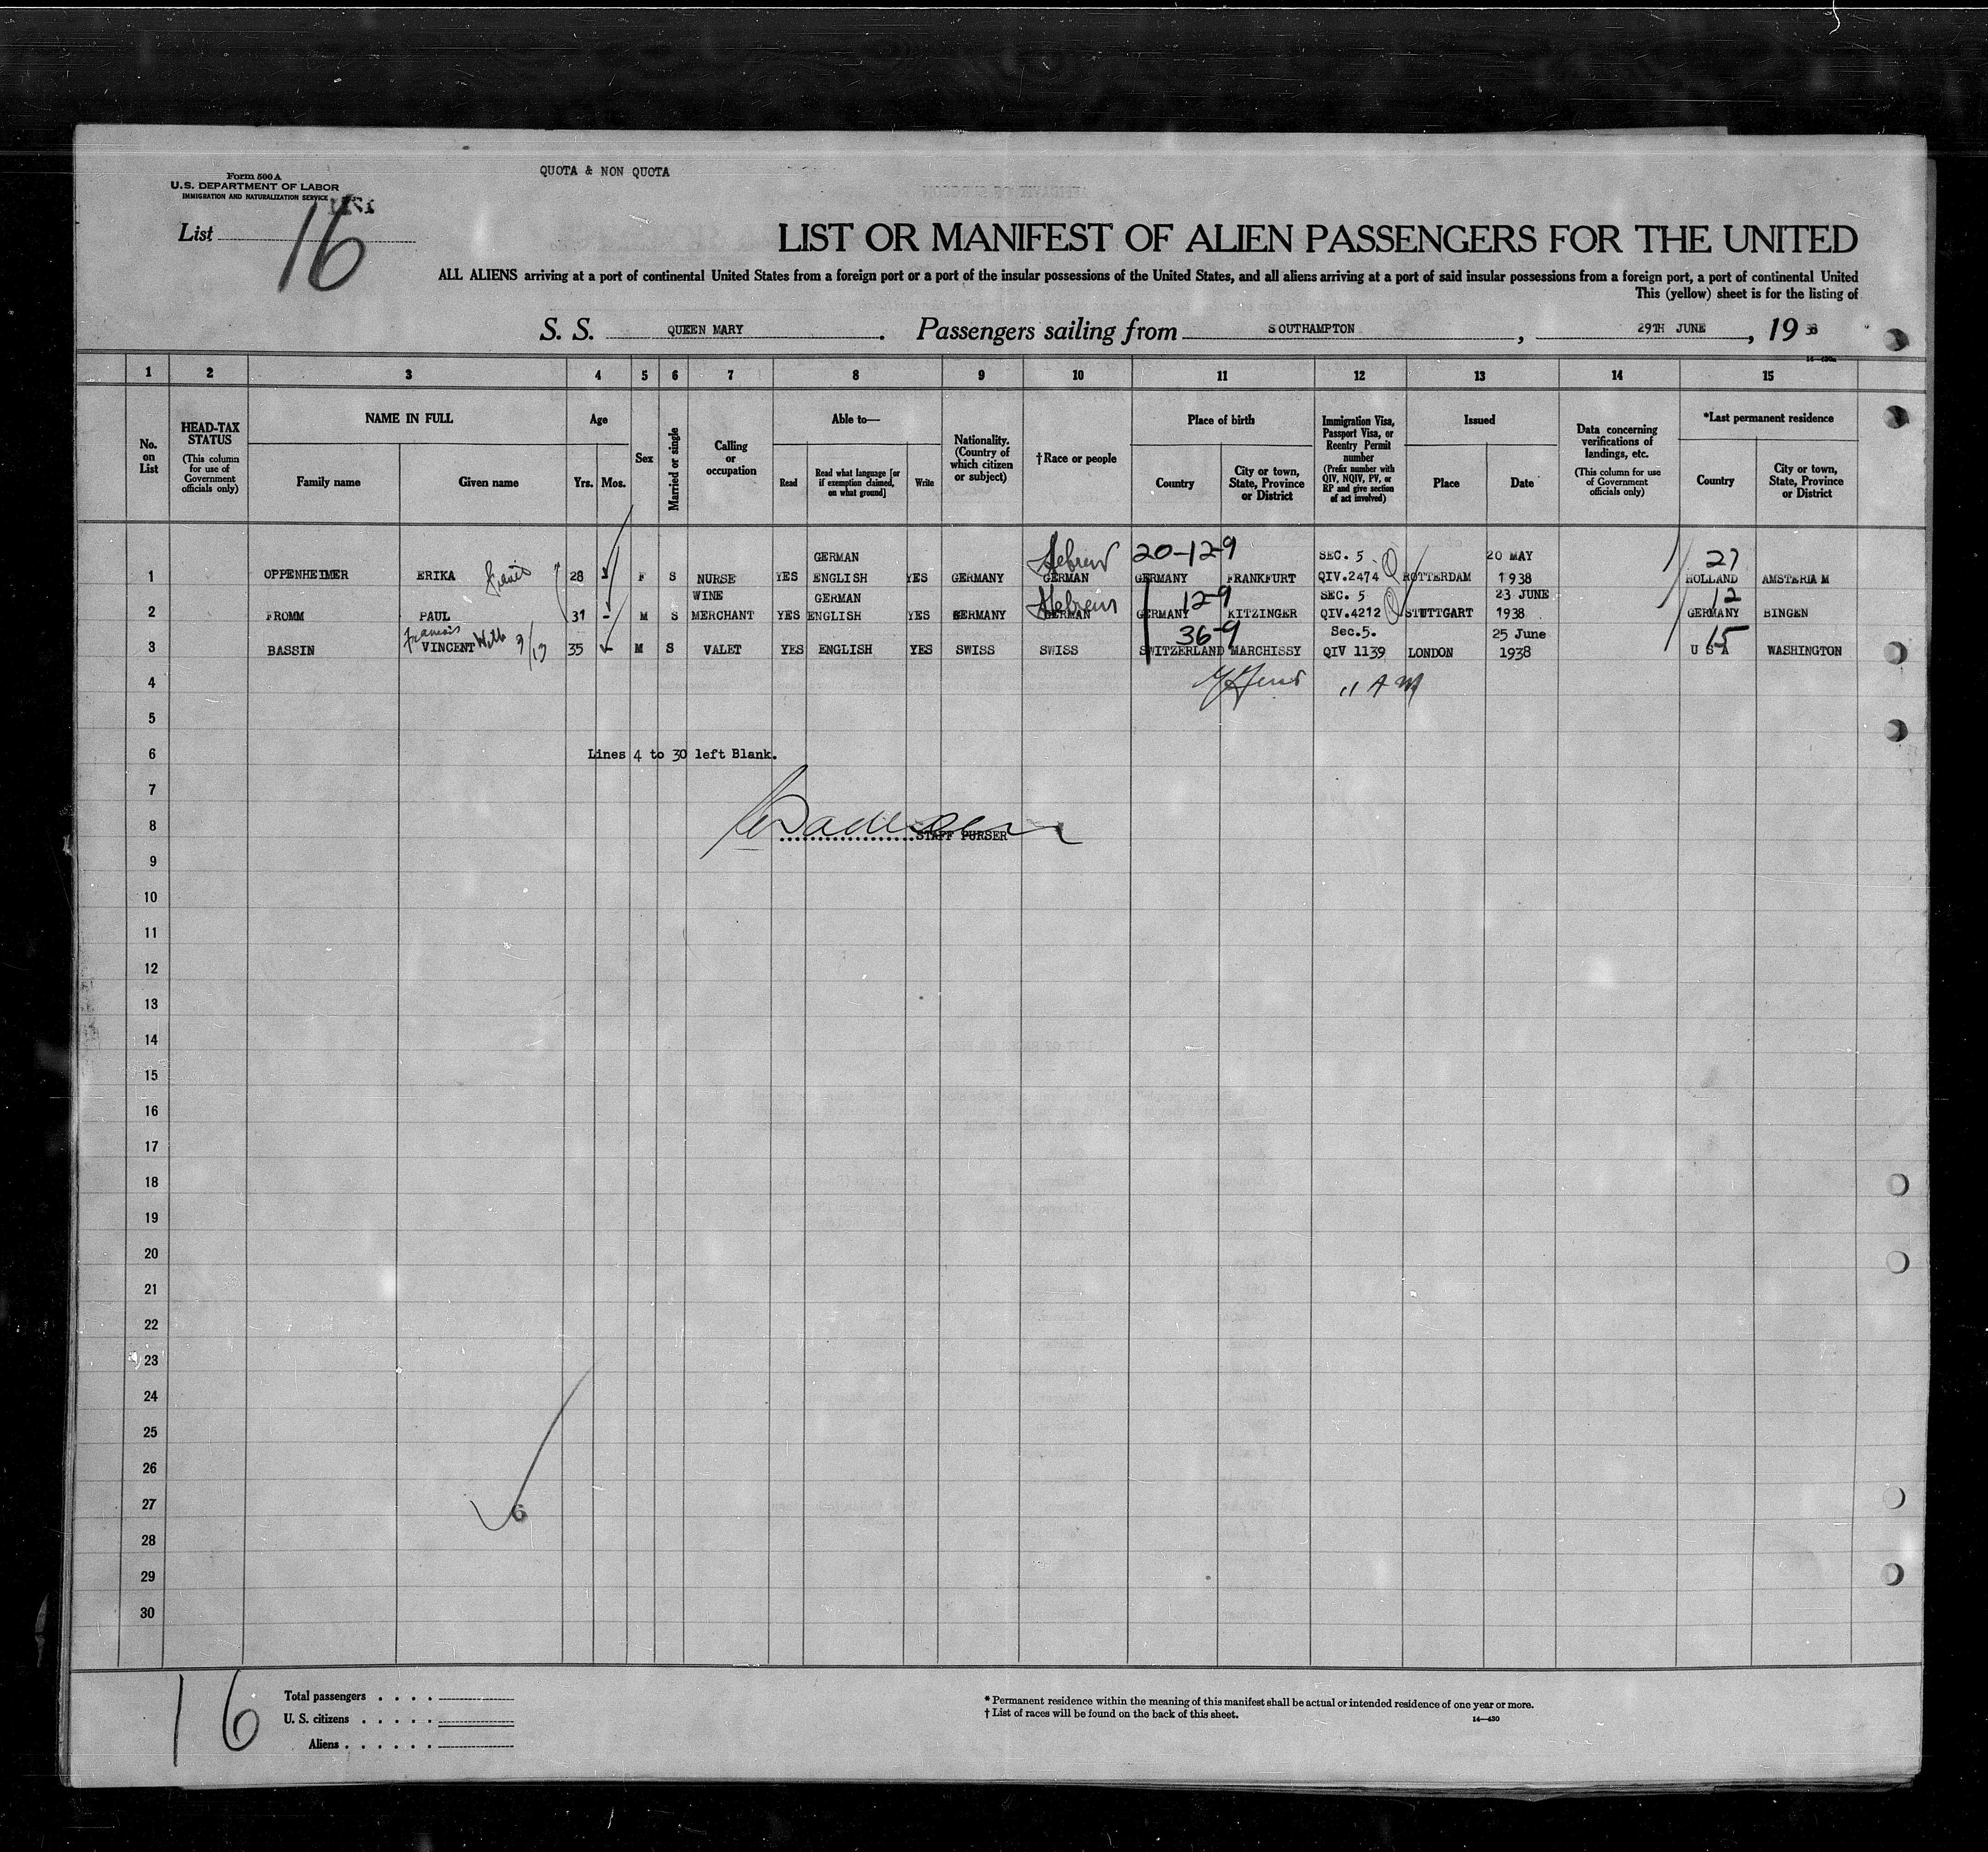 Form 500 A
U.S. DEPARTMENT OF LABOR
IMMIGRATION AND NATURALIZATION SERVICE
QUOTA & NON QUOTA
List 16
LIST OR MANIFEST OF ALIEN PASSENGERS FOR THE UNITED
ALL ALIENS arriving at a port of continental United States from a foreign port or a port of the insular possessions of the United States, and all aliens arriving at a port of said insular possessions from a foreign port, a port of continental United
This (yellow) sheet is for the listing of
S. S. QUEEN MARY. Passengers sailing from SOUTHAMPTON, 29TH JUNE, 1938
14—430a
1 2 3 4 5 6 7 8 9 10 11 12 13 14 15
No. on List
HEAD-TAX STATUS (This column for use of Government officials only)
NAME IN FULL
Family name Given name
Age
Yrs. Mos.
Sex
Married or single
Calling or occupation
Able to—
Read Read what language [or if exemption claimed, on what ground] Write
Nationality. (Country of which citizen or subject)
†Race or people
Place of birth
Country City or town, State, Province or District
Immigration Visa, Passport Visa, or Reentry Permit number (Prefix number with QIV, NQIV, PV, or RP and give section of act involved)
Issued
Place Date
Data concerning verifications of landings, etc. (This column for use of Government officials only)
*Last permanent residence
Country City or town, State, Province or District
GERMAN Hebrew 20-12-9 SEC. 5 20 MAY 27
1 OPPENHEIMER ERIKA 28 F S NURSE YES ENGLISH YES GERMANY GERMAN GERMANY FRANKFURT QIV.2474 ROTTERDAM 1938 HOLLAND AMSTERDAM
WINE GERMAN Hebrew 12-9 SEC. 5 23 JUNE 12
2 FROMM PAUL 31 - M S MERCHANT YES ENGLISH YES GERMANY GERMAN GERMANY KITZINGER QIV.4212 STUTTGART 1938 GERMANY BINGEN
Francois 36-9 Sec.5. 25 June 15
3 BASSIN VINCENT 3/13 35 M S VALET YES ENGLISH YES SWISS SWISS SWITZERLAND MARCHISSY QIV 1139 LONDON 1938 U S A WASHINGTON
4 11 AM
5
6 Lines 4 to 30 left Blank.
7
8 STAFF PURSER
9
10
11
12
13
14
15
16
17
18
19
20
21
22
23
24
25
26
27 6
28
29
30
16
Total passengers
U. S. citizens
Aliens
* Permanent residence within the meaning of this manifest shall be actual or intended residence of one year or more.
† List of races will be found on the back of this sheet.
14—430